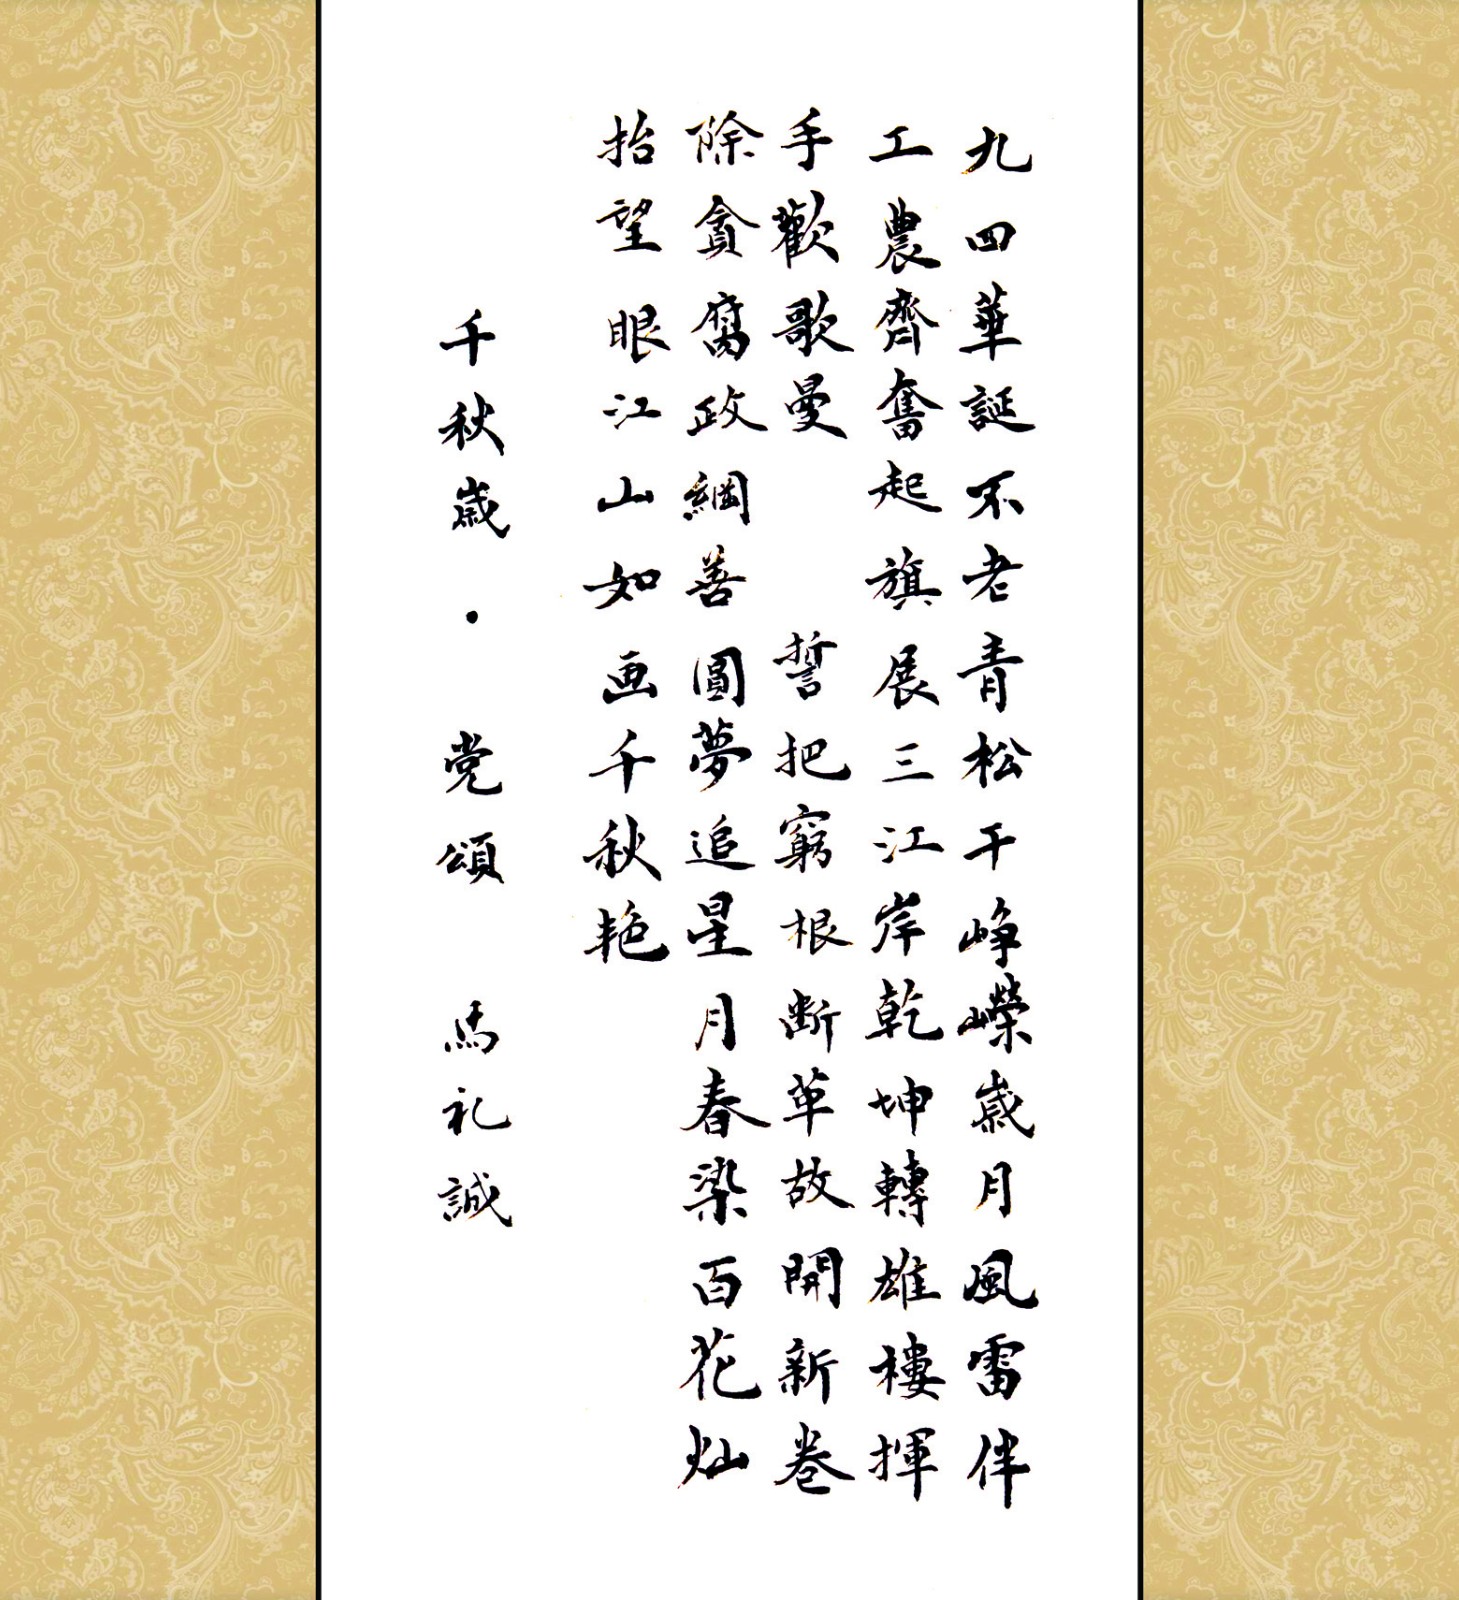 九四華誕不老青松干崢嶸歲月風雷伴
工農齊奮起旗展三江岸乾坤轉雄樓揮
手歡歌曼 誓把窮根断草故開新卷
除貪腐政綱善圓夢追星月春染百花灿
抬望眼江山如画千秋艳
千秋歲·党頌 馬礼誠